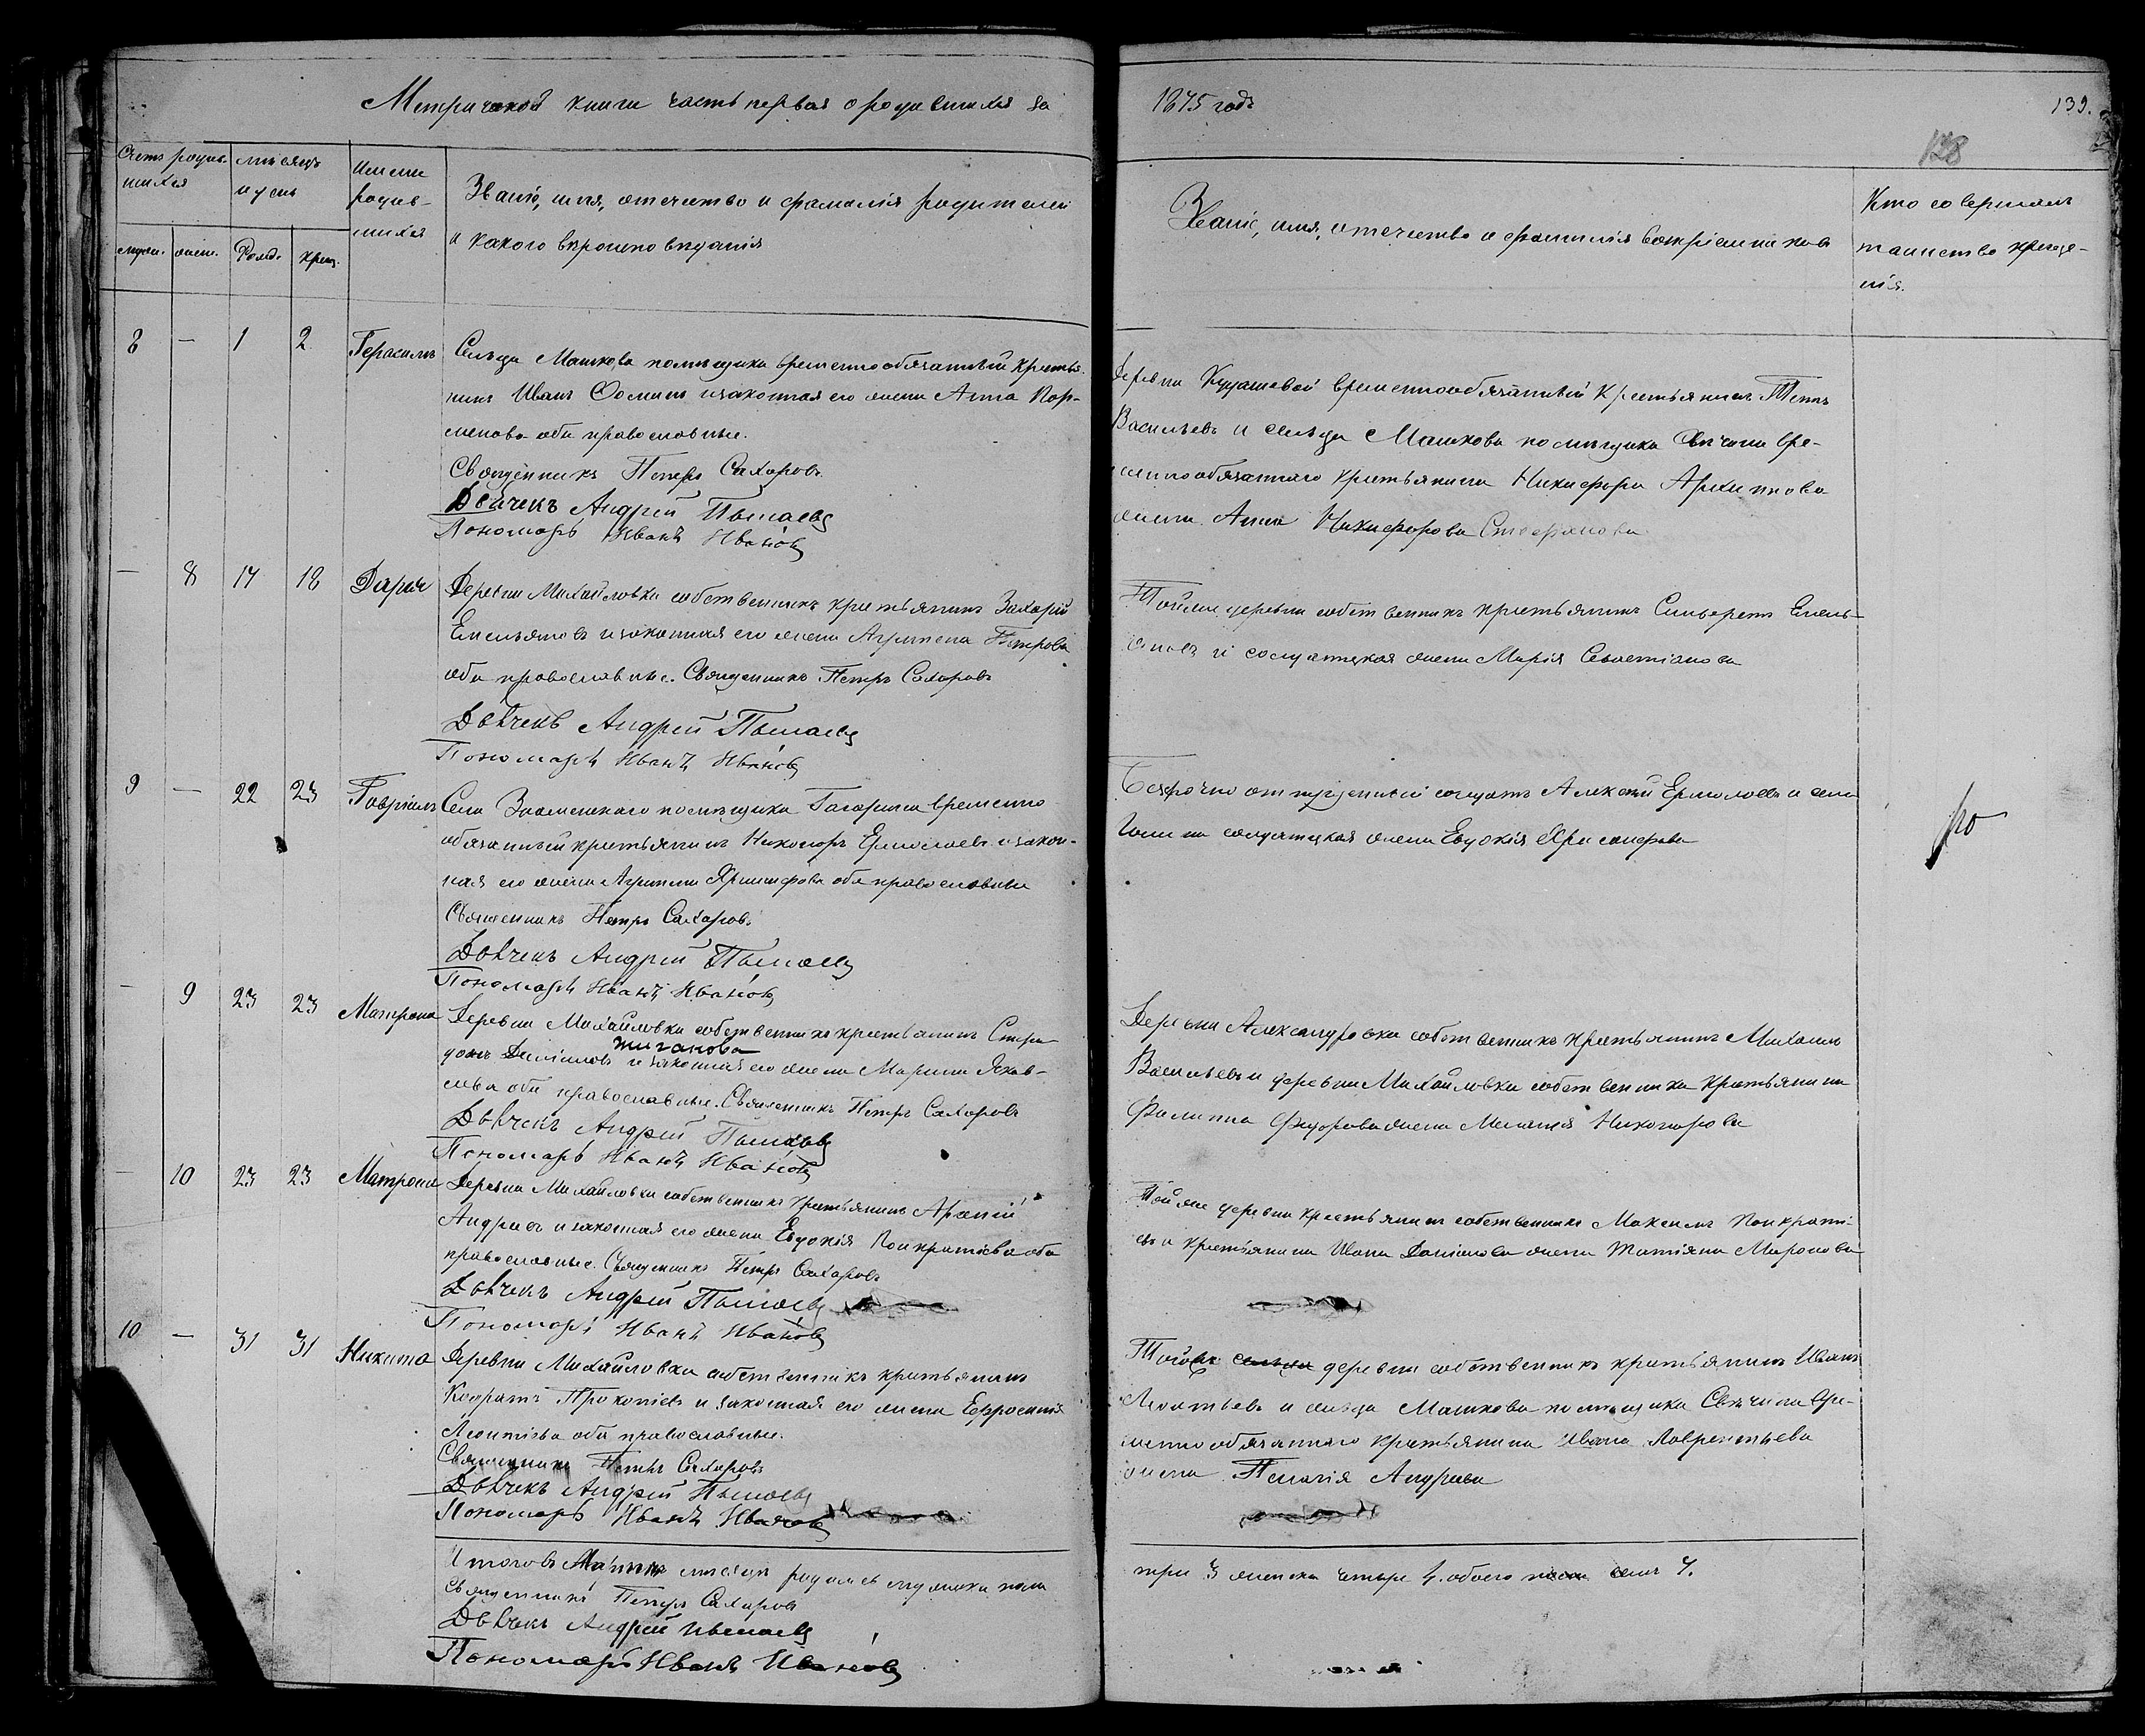 Метрической книги часть первая о родившихся за
1875 годъ
139.
128
Счетъ родив-
шихся
мѣсяцъ
и день
Имена
родив-
шихся
Званіе, имя, отечество и фамилія родителей
и какого вѣроисповѣданія
муж. жен. Рожд. крещ.
Званіе, имя, отечество и фамилія воспріемниковъ
Кто совершалъ
таинство креще-
нія.
8 — 1 2 Герасимъ Сельца Машкова помѣщика временнообязанный крестья-
нинъ Иванъ Фоминъ и законная его жена Анна Пар-
менова оба православные.
Священникъ Петръ Сахаровъ
Дьячекъ Андрей
Пономарь Иванъ Ивановъ
Деревни временнообязанный крестьянинъ
Васильевъ и сельца Машкова помѣщика Свѣчина вре-
меннообязаннаго крестьянина Никифора Архипова
жена Анна Никифорова Стефанова
— 8 17 18 Дарья Деревни Михайловки собственникъ крестьянинъ Захарій
Емельяновъ и законная его жена Агрипена Петрова
оба православные. Священникъ Петръ Сахаровъ
Дьячекъ Андрей
Пономарь Иванъ Ивановъ
Тойже деревни собственникъ крестьянинъ Емель-
яновъ и солдатская жена Марія Севастіанова
9 — 22 23 Гавріилъ Села Знаменскаго помѣщика Гагарина временно
обязанный крестьянинъ Никаноръ Ермолаевъ и закон-
ная его жена Агрипена оба православные
Священникъ Петръ Сахаровъ
Дьячекъ Андрей
Пономарь Иванъ Ивановъ
Безсрочно отпускной солдатъ Алексѣй Ермолаевъ и села
солдатская жена Евдокія
— 9 23 23 Матрона Деревни Михайловки собственникъ крестьянинъ Спири-
донъ и законная его жена Марина Яков-
лева оба православные. Священникъ Петръ Сахаровъ
Дьячекъ Андрей
Пономарь Иванъ Ивановъ
Деревни Александровки собственникъ крестьянинъ Михаилъ
Васильевъ и деревни Михайловки собственника крестьянина
Филиппа Федорова жена Меланія Никанорова
— 10 23 23 Матрона Деревни Михайловки собственникъ крестьянинъ
Андреевъ и законная его жена Евдокія Панкратіева оба
православные. Священникъ Петръ Сахаровъ
Дьячекъ Андрей
Пономарь Иванъ Ивановъ
Тойже деревни крестьянинъ собственникъ Максимъ Панкраті-
евъ и крестьянина Ивана Даніилова жена Татіяна Миронова
10 — 31 31 Никита Деревни Михайловки собственникъ крестьянинъ
Кодратъ Прокопіевъ и законная его жена Ефросинія
Леонтіева оба православные.
Священникъ Петръ Сахаровъ
Дьячекъ Андрей
Пономарь Иванъ Ивановъ
деревни собственникъ крестьянинъ Иванъ
Леонтьевъ и сельца Машкова помѣщика Свѣчина вре-
меннообязаннаго крестьянина Ивана Лаврентьева
жена Пелагія Андреева
Итого въ Мартѣ мѣсяцѣ родилось мужска пола
три 3 женска четыре 4. обоего пола семь 7.
Священникъ Петръ Сахаровъ
Дьячекъ Андрей
Пономарь Иванъ Ивановъ